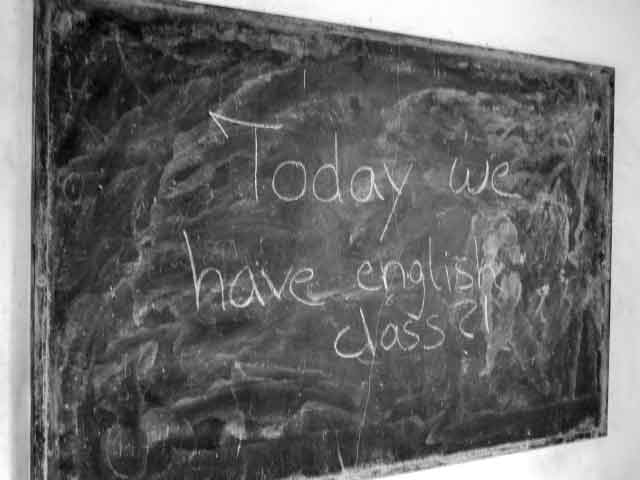 Today we
have english
class?!